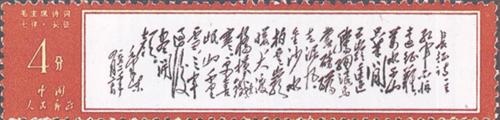 毛主席诗词
七律·长征
4分
中国
人民邮政
红军不怕
远征难
万水千山
只等闲
五岭逶迤
腾细浪乌
蒙磅礴
走泥丸
金沙水
拍云崖
暖大渡
桥横铁索
寒更喜
岷山千里
雪三军
过后
尽开
颜
毛泽东